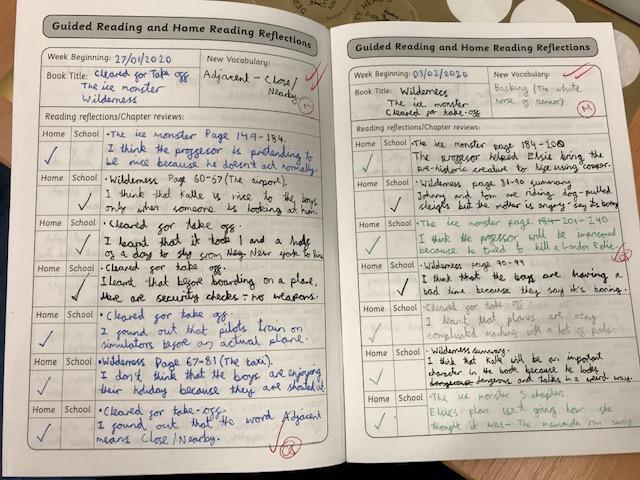 Guided Reading and Home Reading Reflections
Week Beginning: 27/01/2020
New Vocabulary:
Adjacent – Close/
Nearby
Book Title: Cleared for Take off
The ice monster
Wilderness
Reading reflections/Chapter reviews:
Home School
•The ice monster Page 149-184.
I think the proffesor is pretending to
be nice because he doesn't act normally.
Home School
•Wilderness Page 60-67 (The airport).
I think that Kalle is nice to the boys
only when someone is looking at him.
Home School
•Cleared for take off.
I learnt that it took 1 and a half
of a day to fly from New York to
Home School
•Cleared for take off.
I learnt that before boarding on a plane,
there are security checks = no weapons.
Home School
•Cleared for take off.
I found out that pilots train on
simulators before an actual plane.
Home School
•Wilderness Page 67-81 (The taxi).
I don't think that the boys are enjoying
their holiday because they are shouted at.
Home School
•Cleared for take-off.
I found out that the word Adjacent
means Close/Nearby.
Guided Reading and Home Reading Reflections
Week Beginning: 03/02/2020
New Vocabulary:
Basking (The white
Book Title: Wilderness
The ice monster
Cleared for take-off
Reading reflections/Chapter reviews:
Home School
•The ice monster page 184-200
The proffesor helped Elsie bring the
pre-historic creature to life using copper.
Home School
•Wilderness page 81-90 summary
Johnny and tom are riding dog-pulled
sleighs but the mother is angry - say its boring
Home School
•The ice monster page 184 201-240
I think the proffesor will be imprisoned
because he tried to kill a London Police.
Home School
•Wilderness page 90-99
I think that the boys are having a
bad time because they say it's boring.
Home School
•Cleared for take-off
I learnt that planes are very
complicated machines with a lot of parts.
Home School
•Wilderness summary
I think that Kalle will be an important
character in the book because he looks
dangerouse dangerous and talks in a weird way.
Home School
•The ice monster 3 chapters
Elsie's plan isn't going how she
thought it was - The mammoth ran away